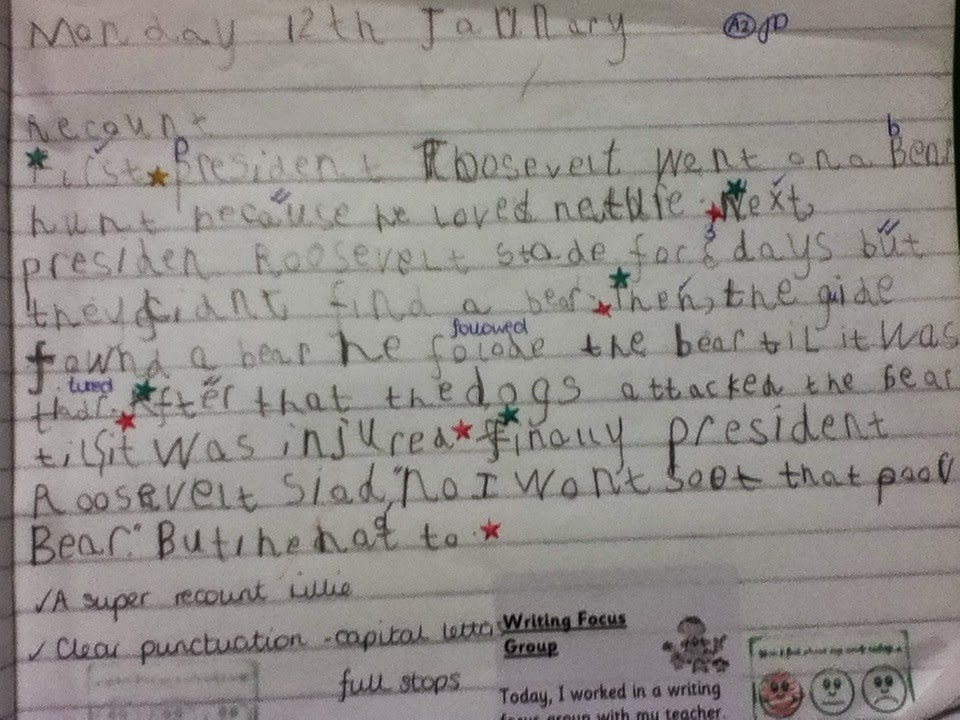 Monday 12th January
A2
Recount
First President Roosevelt went on a Bear
hunt because he loved nature. Next,
presiden Roosevelt stade for 3 days but
they didnt find a bear. Then, the guide
followed
fownd a bear he folode the bear til it was
tured
thar. After that the dogs attacked the bear
til it was injured finally president
Roosevelt Siad, "No I won't soot that poor
Bear." But he had to.
✓A super recount Lillie
✓ Clear punctuation - capital letters
full stops
Writing Focus
Group
Today, I worked in a writing
focus group with my teacher.